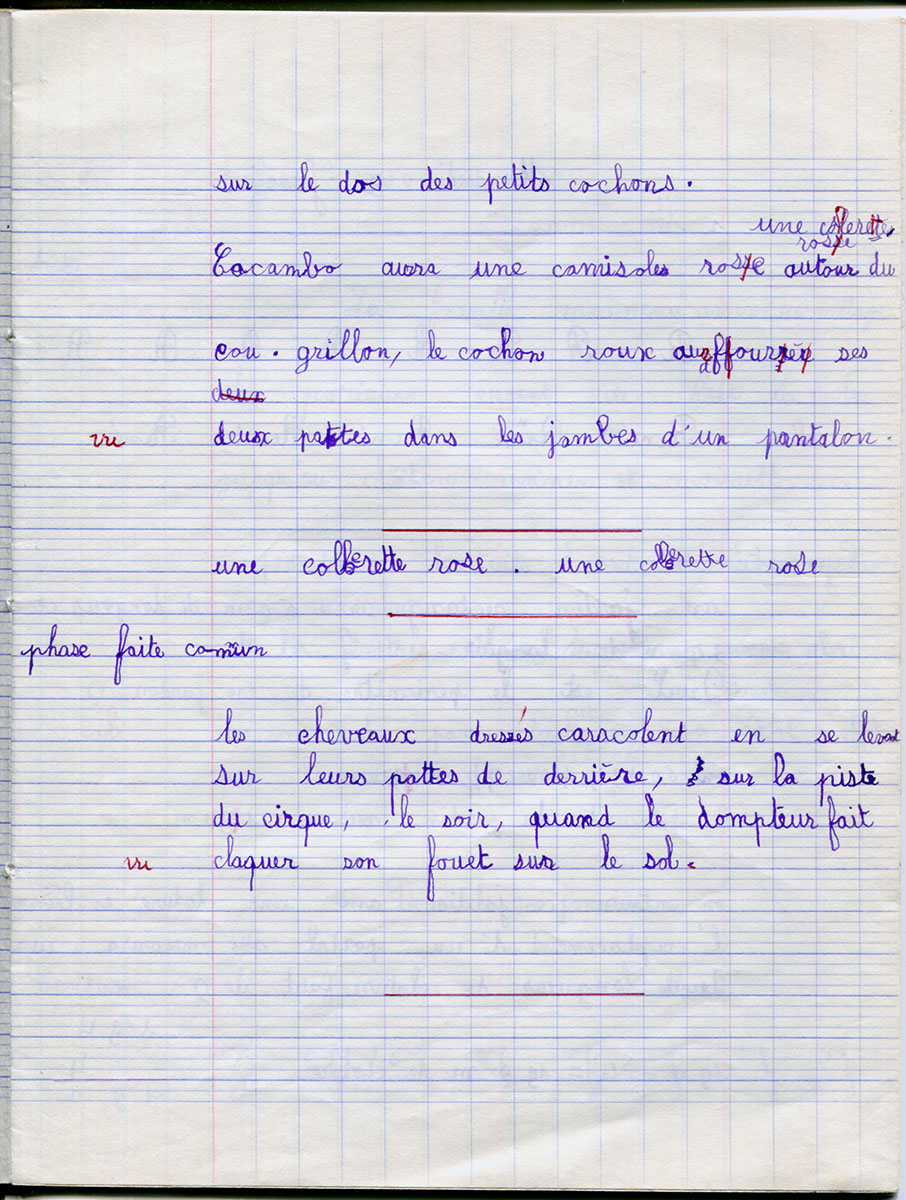 sur le dos des petits cochons.
une collerette
rosse
Cacambo aura une camisole rosse autour du
cou. grillon, le cochon roux aura fourrée ses
deux
vu deux pattes dans les jambes d'un pantalon.
une collerette rose. une collerette rose
phase faite comun
les cheveaux dressés caracolent en se levant
sur leurs pattes de derrière, sur la piste
du cirque, le soir, quand le dompteur fait
vu claquer son fouet sur le sol.